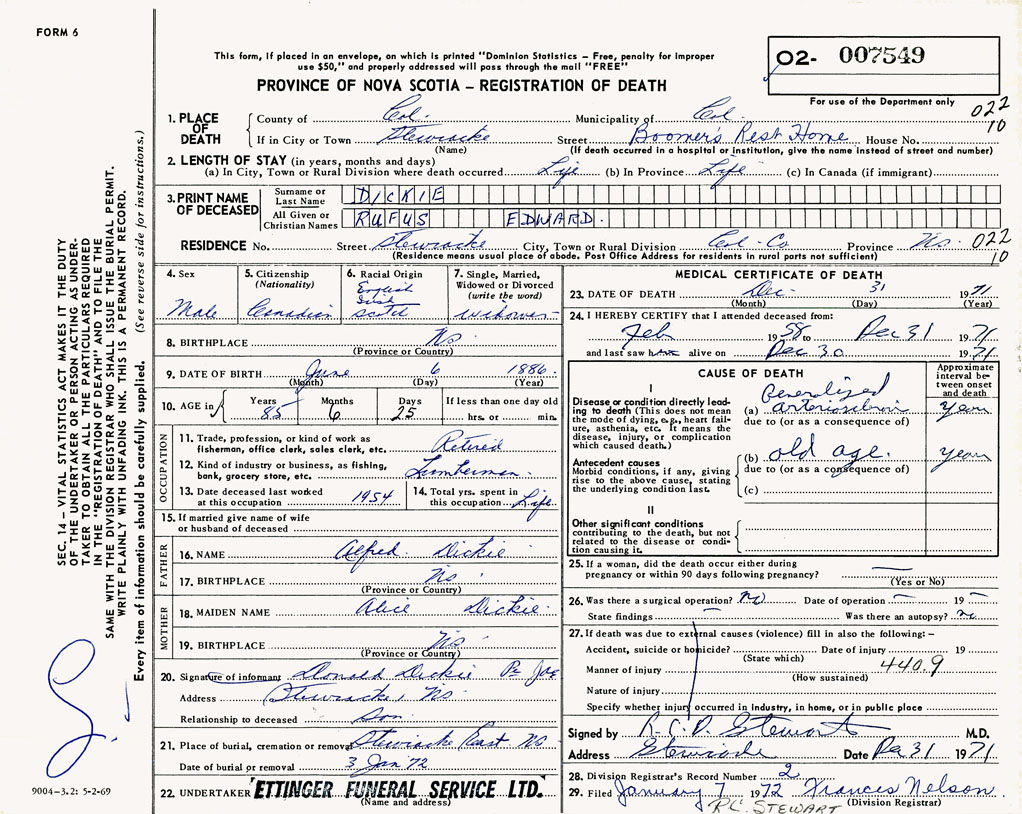 FORM 6
This form, if placed in an envelope, on which is printed "Dominion Statistics – Free, penalty for improper
use $50," and properly addressed will pass through the mail "FREE"
PROVINCE OF NOVA SCOTIA – REGISTRATION OF DEATH
02- 007549
For use of the Department only
022
10
1. PLACE OF DEATH
County of Col. Municipality of Col.
If in City or Town Stewiacke Street Boomer's Rest Home House No.
(Name) (If death occurred in a hospital or institution, give the name instead of street and number)
2. LENGTH OF STAY (in years, months and days)
(a) In City, Town or Rural Division where death occurred Life (b) In Province Life (c) In Canada (if immigrant)
3. PRINT NAME OF DECEASED
Surname or Last Name DICKIE
All Given or Christian Names RUFUS EDWARD.
RESIDENCE No. Street Stewiacke City, Town or Rural Division Col-Co Province NS. 022
(Residence means usual place of abode. Post Office Address for residents in rural parts not sufficient) 10
4. Sex
Male
5. Citizenship
(Nationality)
Canadian
6. Racial Origin
English
Irish
Scotch
7. Single, Married,
Widowed or Divorced
(write the word)
widower
8. BIRTHPLACE NS
(Province or Country)
9. DATE OF BIRTH June 6 1886
(Month) (Day) (Year)
10. AGE in
Years 85
Months 6
Days 25
If less than one day old
hrs. or min.
OCCUPATION
11. Trade, profession, or kind of work as
fisherman, office clerk, sales clerk, etc. Retired
12. Kind of industry or business, as fishing,
bank, grocery store, etc. Lumberman.
13. Date deceased last worked
at this occupation 1954
14. Total yrs. spent in
this occupation Life
15. If married give name of wife
or husband of deceased
FATHER
16. NAME Alfred Dickie
17. BIRTHPLACE NS
(Province or Country)
MOTHER
18. MAIDEN NAME Alice Dickie
19. BIRTHPLACE NS
(Province or Country)
20. Signature of informant Donald Dickie
Address Stewiacke, NS
Relationship to deceased Son
21. Place of burial, cremation or removal Stewiacke East NS
Date of burial or removal 3 Jan 72
22. UNDERTAKER ETTINGER FUNERAL SERVICE LTD.
(Name and address)
MEDICAL CERTIFICATE OF DEATH
23. DATE OF DEATH Dec. 31 1971
(Month) (Day) (Year)
24. I HEREBY CERTIFY that I attended deceased from:
Feb 1958 to Dec 31 1971
and last saw alive on Dec 30 1971
CAUSE OF DEATH
Approximate
interval be-
tween onset
and death
I
Disease or condition directly lead-
ing to death (This does not mean
the mode of dying, e.g., heart fail-
ure, asthenia, etc. It means the
disease, injury, or complication
which caused death.)
Generalized
(a) years
due to (or as a consequence of)
Antecedent causes
Morbid conditions, if any, giving
rise to the above cause, stating
the underlying condition last.
(b) old age. years
due to (or as a consequence of)
(c)
II
Other significant conditions
contributing to the death, but not
related to the disease or condi-
tion causing it.
25. If a woman, did the death occur either during
pregnancy or within 90 days following pregnancy? —
(Yes or No)
26. Was there a surgical operation? no Date of operation – 19 –
State findings – Was there an autopsy? no
27. If death was due to external causes (violence) fill in also the following: –
Accident, suicide or homicide? Date of injury 19
(State which)
Manner of injury 440.9
(How sustained)
Nature of injury
Specify whether injury occurred in industry, in home, or in public place
Signed by R.C.D. Stewart M.D.
Address Stewiacke Date Dec 31 1971
28. Division Registrar's Record Number 2
29. Filed January 7 1972 Frances Nelson
R.C. STEWART (Division Registrar)
SEC. 14 – VITAL STATISTICS ACT MAKES IT THE DUTY
OF THE UNDERTAKER OR PERSON ACTING AS UNDER-
TAKER TO OBTAIN ALL THE PARTICULARS REQUIRED
IN THE "REGISTRATION OF DEATH" AND TO FILE THE
SAME WITH THE DIVISION REGISTRAR WHO SHALL ISSUE THE BURIAL PERMIT.
WRITE PLAINLY WITH UNFADING INK. THIS IS A PERMANENT RECORD.
Every item of information should be carefully supplied. (See reverse side for instructions.)
9004-3.2: 5-2-69